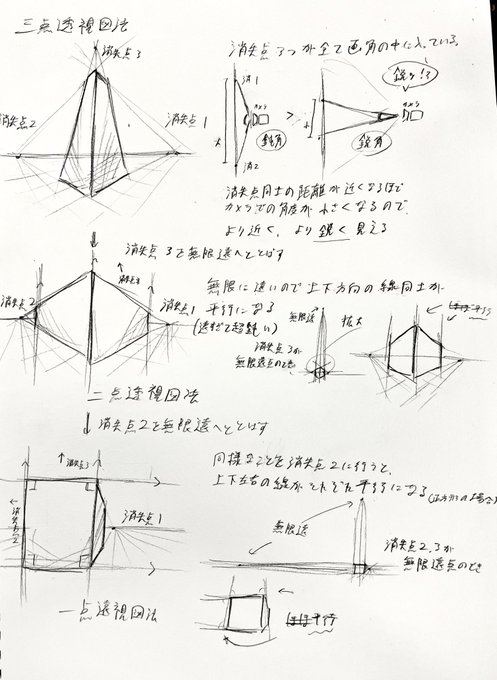 三点透視図法
消失点3
消失点2
消失点1
消失点3つが全て画角の中に入っている。
消1
カメラ
鈍角
消2
>
鋭っ!?
カメラ
鋭角
消失点同士の距離が近くなるほど
カメラでの角度が小さくなるので、
より近く、より鋭く見える
消失点3を無限遠へととばす
消失点3
消失点2
消失点1
無限に遠いので上下方向の線同士が
平行になる
(遠すぎて超鈍い)
無限遠
拡大
消失点3が
無限遠点のとき
ほぼ平行
二点透視図法
消失点2を無限遠へととばす
消失点3
消失点2
消失点1
同様なことを消失点2に行うと、
上下左右の線がそれぞれ平行になる
無限遠
消失点2,3が
無限遠点のとき
ほぼ平行
一点透視図法